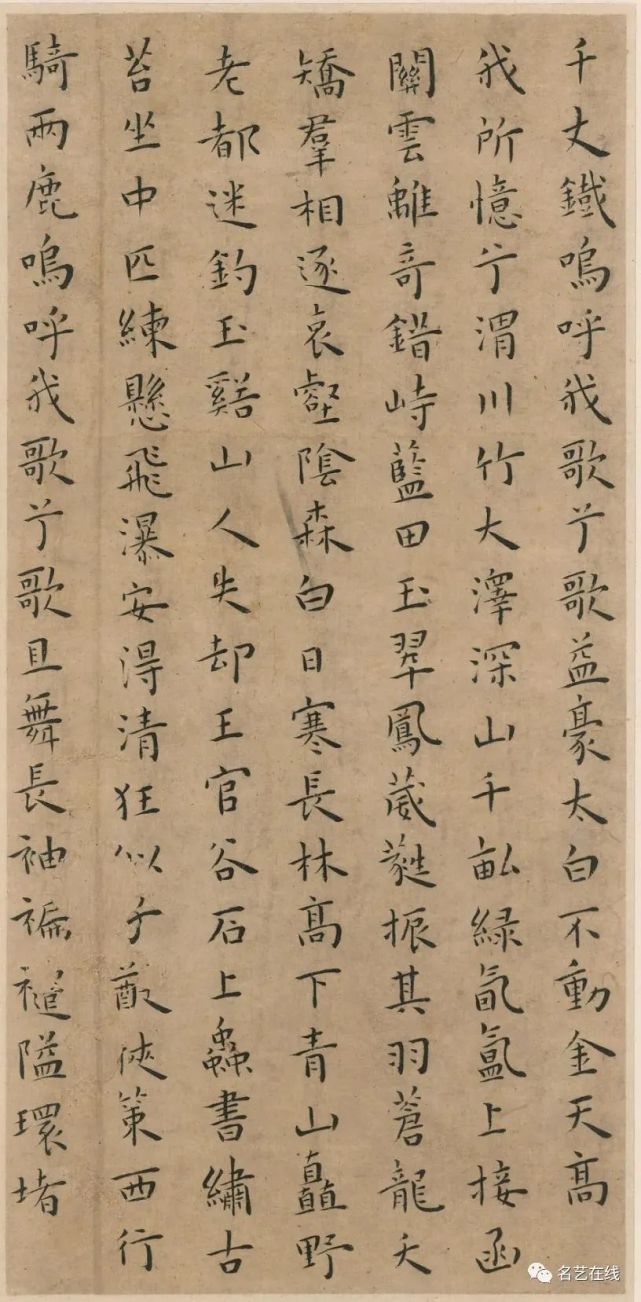 千丈鐵嗚呼我歌兮歌益豪太白不動金天高
我所憶兮渭川竹大澤深山千畝綠氤氳上接函
關雲離奇錯峙藍田玉翠鳳葳蕤振其羽蒼龍夭
矯羣相逐哀壑陰森白日寒長林高下青山矗野
老都迷釣玉谿山人失却王官谷石上蟲書繡古
苔坐中匹練懸飛瀑安得清狂似子猷俠策西行
騎兩鹿嗚呼我歌兮歌且舞長袖褊褼隘環堵
名艺在线